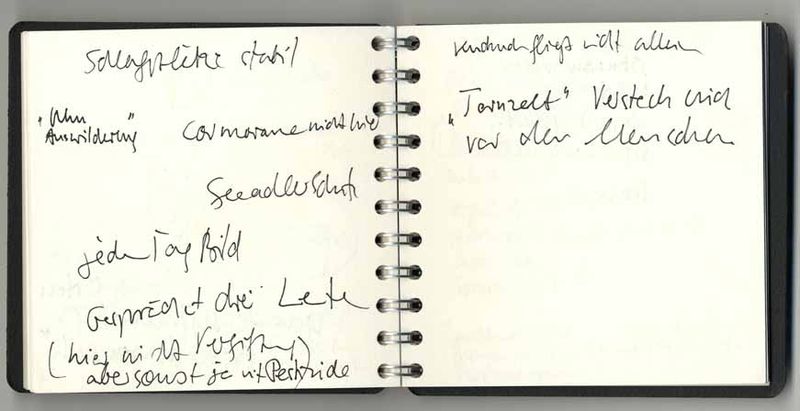 Schlafplätze stabil
"
Auswilderung"
Cormorane nicht hier
Seeadlerschutz
jeden Tag Bild
Gespräch drei Leute
(hier nicht Vergiftung)
aber sonst ja mit Pestizide
fliegt nicht allein
"Tarnzelt" Versteck mich
vor den Menschen